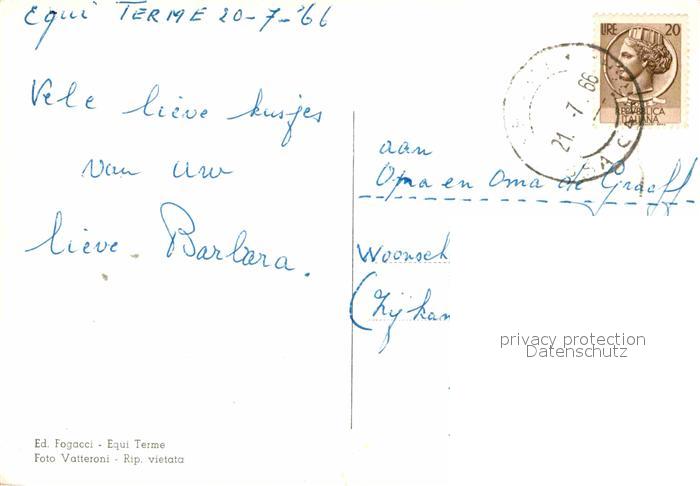 Equi TERME 20-7-'66
Vele lieve kusjes
van uw
lieve Barbara.
LIRE 20
REPVBBLICA
ITALIANA
21.-7.66
aan
Opa en Oma de Graeff
Woonsch
(Zijkan
privacy protection
Datenschutz
Ed. Fogacci - Equi Terme
Foto Vatteroni - Rip. vietata